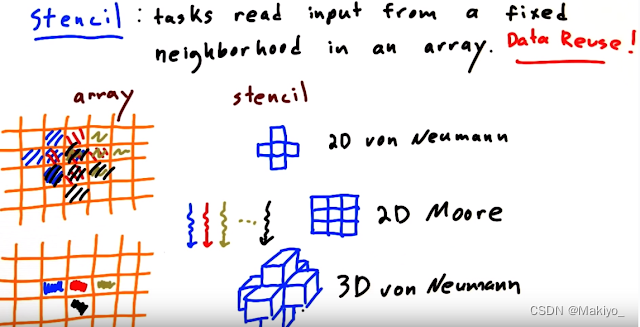 Stencil : tasks read input from a fixed
neighborhood in an array. Data Reuse!
array stencil
2D von Neumann
2D Moore
3D von Neumann
CSDN @Makiyo_